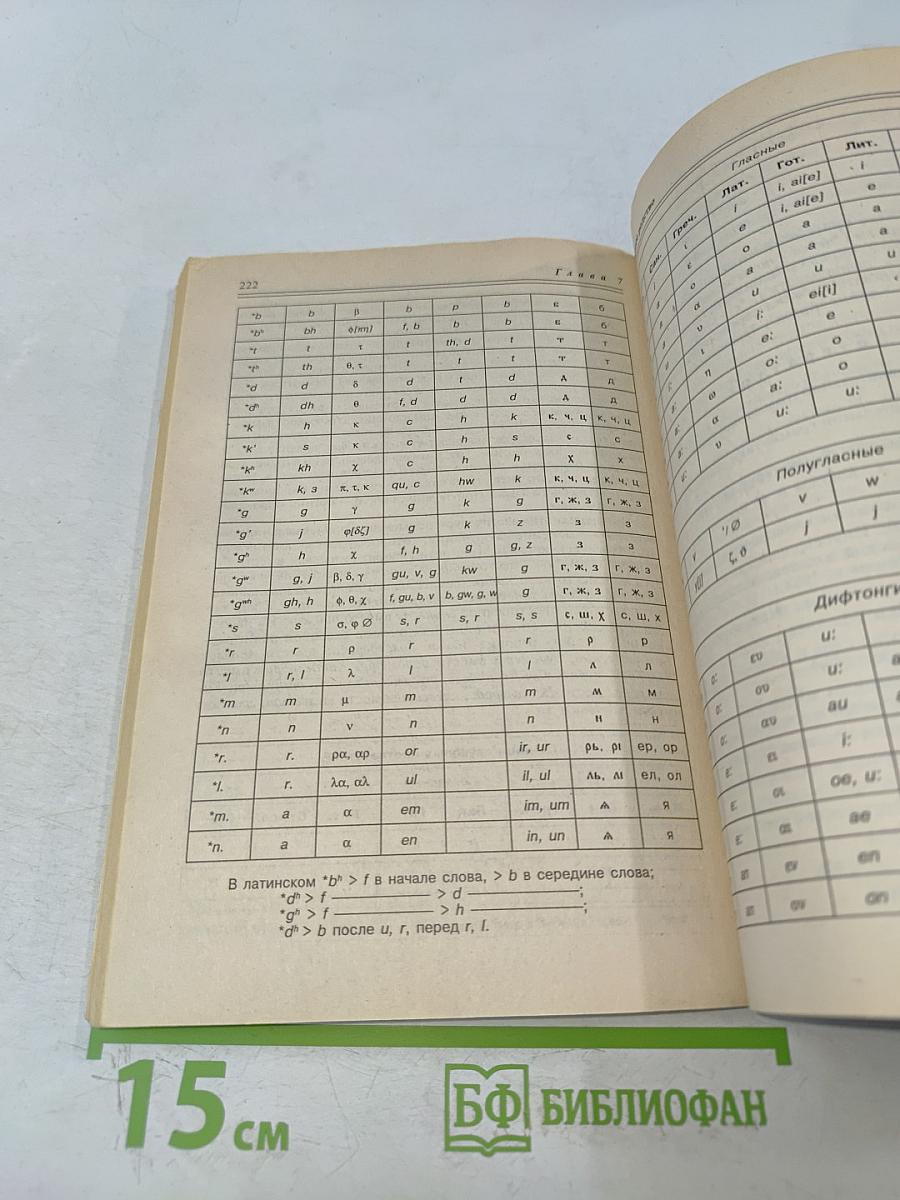 222 Глава 7
*b b β b p b в б
*bʰ bh ϕ[πη] f, b b b в б
*t t τ t th, d t т т
*tʰ th θ, τ t t t т т
*d d δ d t d д д
*dʰ dh θ f, d d d д д
*k h κ c h k к, ч, ц к, ч, ц
*k' s κ c h s с с
*kʰ kh χ c h h χ х
*kʷ k, з π, τ, κ qu, c hw k к, ч, ц к, ч, ц
*g g γ g k g г, ж, з г, ж, з
*g' j φ[δζ] g k z з з
*gʰ h χ f, h g g, z з з
*gʷ g, j β, δ, γ gu, v, g kw g г, ж, з г, ж, з
*gʷʰ gh, h ϕ, θ, χ f, gu, b, v b, gw, g, w g г, ж, з г, ж, з
*s s σ, φ Ø s, r s, r s, s с, ш, χ с, ш, х
*r r ρ r r ρ р
*l r, l λ l l л л
*m m μ m m м м
*n n ν n n н н
*r. r. ρα, αρ or ir, ur ρь, ρι ер, ор
*l. r. λα, αλ ul il, ul ль, лι ел, ол
*m. a α em im, um ѧ я
*n. a α en in, un ѧ я
В латинском *bʰ > f в начале слова, > b в середине слова;
*dʰ > f ——— > d ———;
*gʰ > f ——— > h ———;
*dʰ > b после u, r, перед r, l.
Гласные
Сан. Греч. Лат. Гот. Лит.
ι i i, ai[e] i
ε e i, ai[e] e
ο o a a
α a a a
υ u u u
ι i: ei[i]
η e: e
ω o: o
α a: o
υ u: u:
Полугласные
v '/ Ø v w
y[j] ζ, ϑ j j
Дифтонги
ευ u:
ου u:
αυ au
ει i:
οι oe, u:
αι ae
εν en
ον on
15 см
БФ БИБЛИОФАН